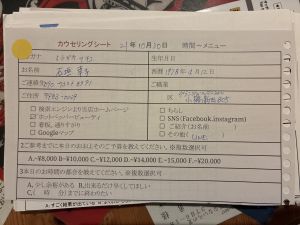 カウセリングシート 21年10月30日 時間〜メニュー
フリガナ 生年月日
お名前 西暦1978年4月12日
ご連絡先 ご職業
ご住所 〒 区
□ 検索エンジンより当店ホームページ □ ちらし
□ ホットペッパービューティ □ SNS(Facebook,instagram)
□ 看板、通りがかり □ ご紹介(お名前 )
□ Googleマップ □ その他( LINE )
2ご参考までに本日のおおよそのご予算を教えてください。※複数選択可
A.~¥8,000 B~¥10,000 C.~¥12,000 D.~¥14,000 E.~15,000 F.~¥20,000
3本日のお時間の都合を教えてください。※複数選択可
A.少し余裕がある B.出来るだけ早くしてほしい
C.( 時 分)までに終わりたい